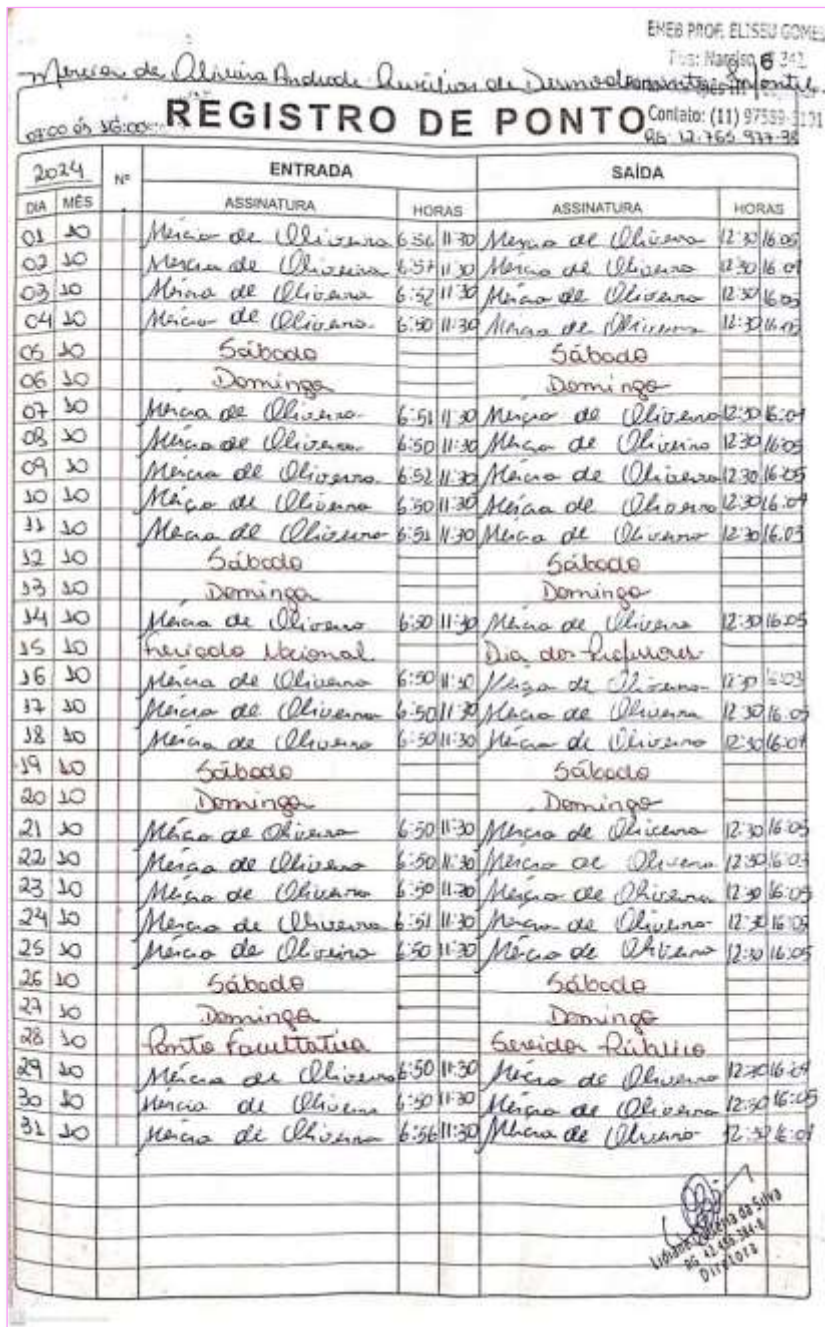 EMEB PROF. ELISEU GOMES
Mércia de Oliveira Andrade Auxiliar de Desenvolvimento Infantil
07:00 às 16:00 REGISTRO DE PONTO Contato: (11)
RG: 12.765.977-38
2024 Nº ENTRADA SAÍDA
DIA MÊS ASSINATURA HORAS ASSINATURA HORAS
01 10 Mércia de Oliveira 6:56 11:30 Mércia de Oliveira 12:30 16:05
02 10 Mércia de Oliveira 6:57 11:30 Mércia de Oliveira 12:30 16:07
03 10 Mércia de Oliveira 6:52 11:30 Mércia de Oliveira 12:30 16:05
04 10 Mércia de Oliveira 6:50 11:30 Mércia de Oliveira 12:30 16:05
05 10 Sábado Sábado
06 10 Domingo Domingo
07 10 Mércia de Oliveira 6:51 11:30 Mércia de Oliveira 12:30 16:07
08 10 Mércia de Oliveira 6:50 11:30 Mércia de Oliveira 12:30 16:05
09 10 Mércia de Oliveira 6:52 11:30 Mércia de Oliveira 12:30 16:05
10 10 Mércia de Oliveira 6:50 11:30 Mércia de Oliveira 12:30 16:07
11 10 Mércia de Oliveira 6:51 11:30 Mércia de Oliveira 12:30 16:03
12 10 Sábado Sábado
13 10 Domingo Domingo
14 10 Mércia de Oliveira 6:50 11:30 Mércia de Oliveira 12:30 16:05
15 10 Feriado Nacional Dia dos Professores
16 10 Mércia de Oliveira 6:50 11:30 Mércia de Oliveira 12:30 16:03
17 10 Mércia de Oliveira 6:50 11:30 Mércia de Oliveira 12:30 16:05
18 10 Mércia de Oliveira 6:50 11:30 Mércia de Oliveira 12:30 16:07
19 10 Sábado Sábado
20 10 Domingo Domingo
21 10 Mércia de Oliveira 6:50 11:30 Mércia de Oliveira 12:30 16:05
22 10 Mércia de Oliveira 6:50 11:30 Mércia de Oliveira 12:30 16:03
23 10 Mércia de Oliveira 6:50 11:30 Mércia de Oliveira 12:30 16:05
24 10 Mércia de Oliveira 6:51 11:30 Mércia de Oliveira 12:30 16:05
25 10 Mércia de Oliveira 6:50 11:30 Mércia de Oliveira 12:30 16:05
26 10 Sábado Sábado
27 10 Domingo Domingo
28 10 Ponto Facultativo Servidor Público
29 10 Mércia de Oliveira 6:50 11:30 Mércia de Oliveira 12:30 16:07
30 10 Mércia de Oliveira 6:50 11:30 Mércia de Oliveira 12:30 16:05
31 10 Mércia de Oliveira 6:56 11:30 Mércia de Oliveira 12:30 16:07
da Silva
Diretora